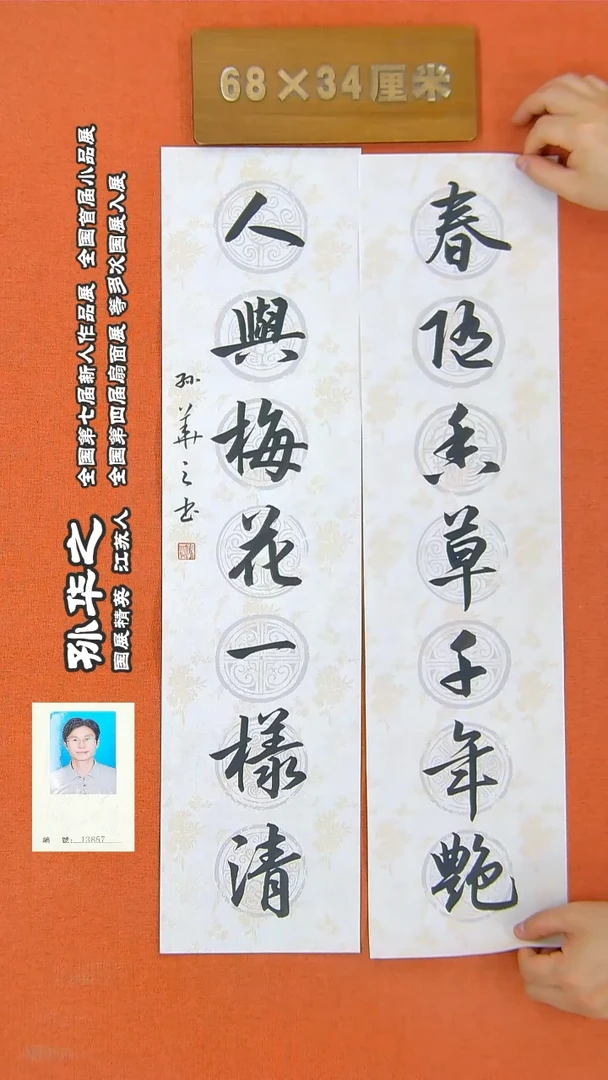 68×34厘米
春随香草千年艳
人與梅花一樣清
孙華之书
孙华之
国展精英 江苏人
全国第七届新人作品展 全国首届小品展
全国第四届扇面展 等多次国展入展
編 號: 13857